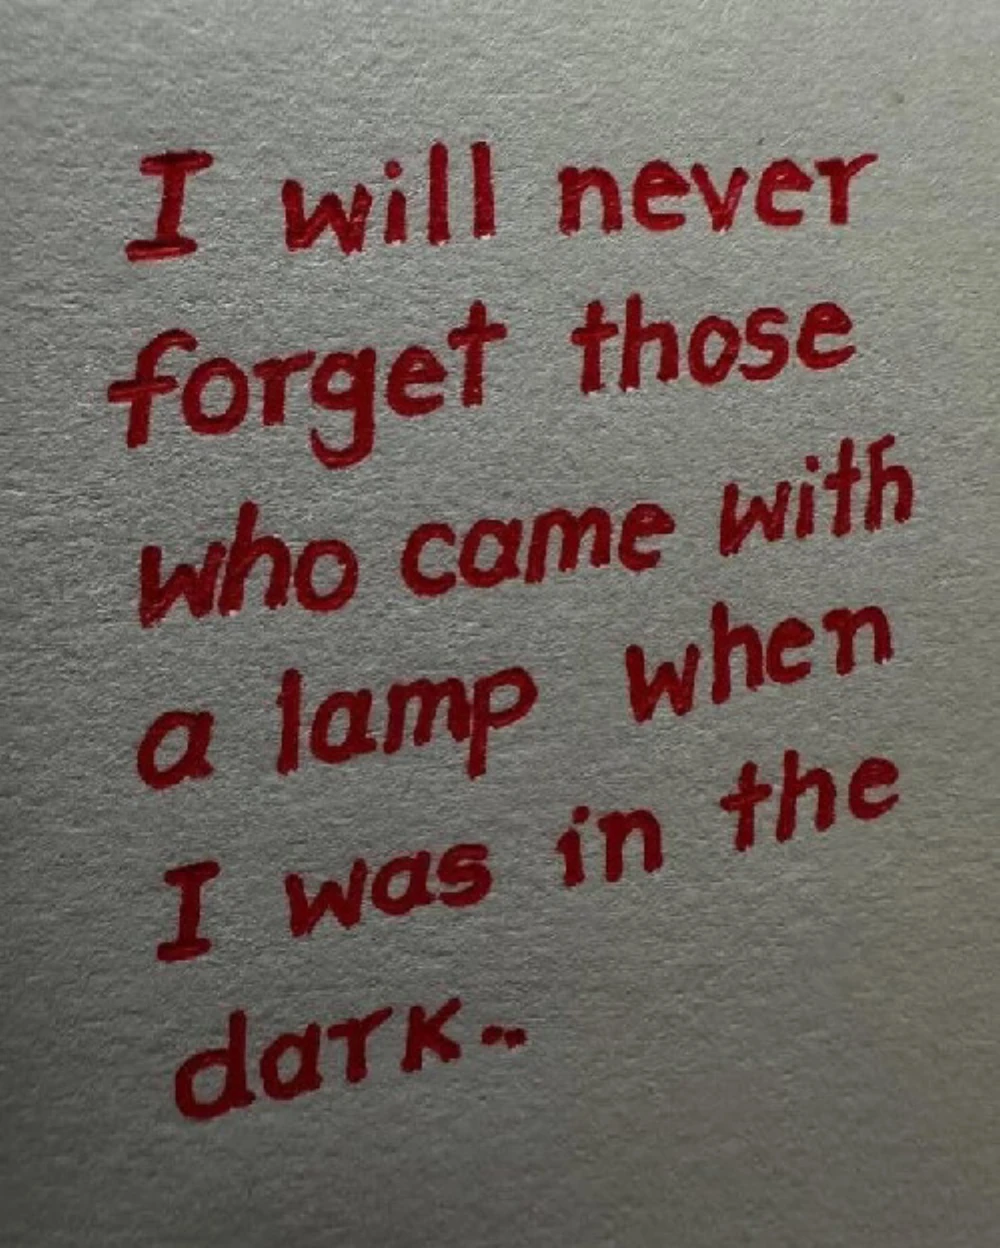 I will never
forget those
who came with
a lamp when
I was in the
dark..